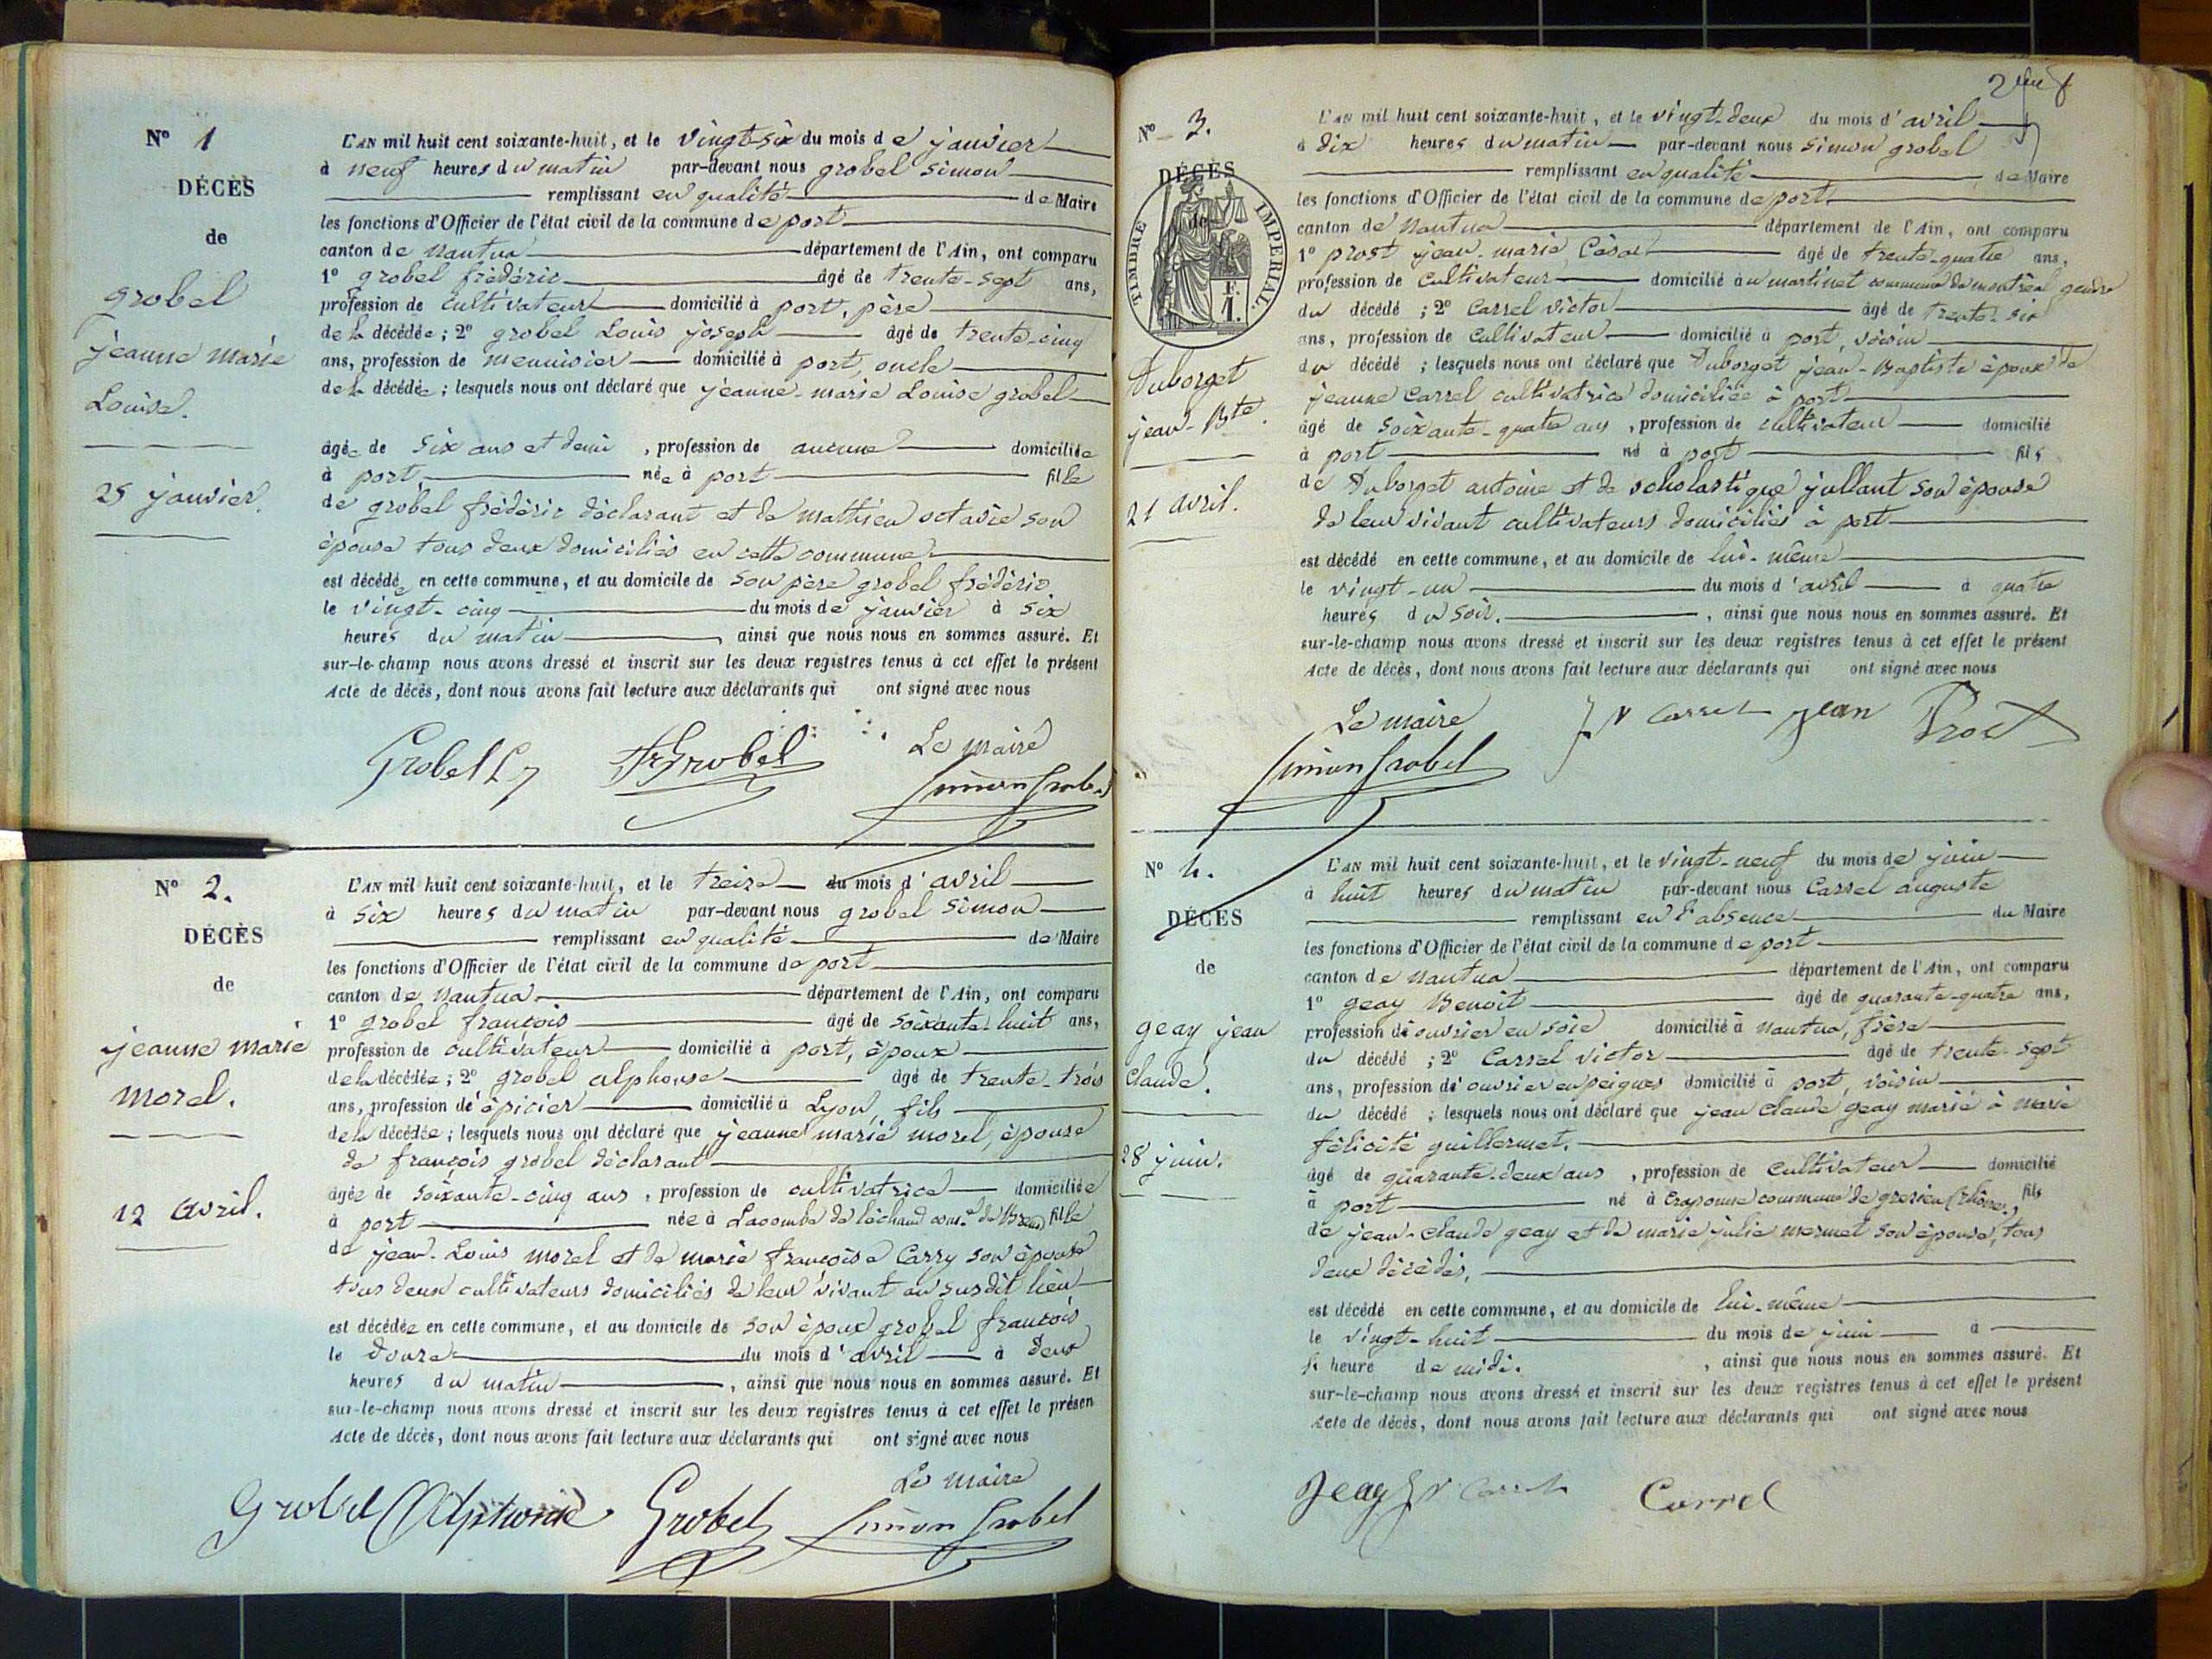 N° 1
DÉCÈS
de
grobel
jeanne marie
Louise.
25 janvier.
L'AN mil huit cent soixante-huit, et le vingt-six du mois de janvier
à neuf heures du matin par-devant nous grobel Simon
remplissant en qualité de Maire
les fonctions d'Officier de l'état civil de la commune de port
canton de Nantua département de l'Ain, ont comparu
1° grobel frédéric âgé de trente-sept ans,
profession de cultivateur domicilié à port, père
de la décédée ; 2° grobel Louis joseph âgé de trente-cinq
ans, profession de menuisier domicilié à port, oncle
de la décédée ; lesquels nous ont déclaré que jeanne-marie Louise grobel
âgée de Six ans et demi , profession de aucune domiciliée
à port née à port fille
de grobel frédéric déclarant et de mathieu octavie son
épouse tous deux domiciliés en cette commune
est décédé en cette commune, et au domicile de son père grobel frédéric
le vingt-cinq du mois de janvier à Six
heures du matin , ainsi que nous nous en sommes assuré. Et
sur-le-champ nous avons dressé et inscrit sur les deux registres tenus à cet effet le présent
Acte de décès, dont nous avons fait lecture aux déclarants qui ont signé avec nous
Le maire
Grobel L J Fr Grobel Simon Grobel
N° 2.
DÉCÈS
de
jeanne marie
morel.
12 avril.
L'AN mil huit cent soixante-huit, et le treize du mois d'avril
à Six heures du matin par-devant nous grobel Simon
remplissant en qualité de Maire
les fonctions d'Officier de l'état civil de la commune de port
canton de Nantua département de l'Ain, ont comparu
1° grobel françois âgé de soixante-huit ans,
profession de cultivateur domicilié à port, époux
de la décédée ; 2° grobel alphonse âgé de trente-trois
ans, profession d'épicier domicilié à Lyon, fils
de la décédée ; lesquels nous ont déclaré que jeanne marie morel, épouse
de françois grobel déclarant
âgée de soixante-cinq ans , profession de cultivatrice domiciliée
à port née à Lacombe de léchaud com.ne de fille
de jean-Louis morel et de marie françoise Carry son épouse
tous deux cultivateurs domiciliés de leur vivant au susdit lieu
est décédée en cette commune, et au domicile de son époux grobel françois
le douze du mois d'avril à deux
heures du matin , ainsi que nous nous en sommes assuré. Et
sur-le-champ nous avons dressé et inscrit sur les deux registres tenus à cet effet le présen
Acte de décès, dont nous avons fait lecture aux déclarants qui ont signé avec nous
Le maire
Grobel Alphonse Grobel Simon Grobel
N° 3.
DÉCÈS
de
TIMBRE IMPERIAL.
Duborget
jean-Bte.
21 avril.
L'AN mil huit cent soixante-huit, et le vingt-deux du mois d'avril
à dix heures du matin par-devant nous Simon grobel
remplissant en qualité de Maire
les fonctions d'Officier de l'état civil de la commune de port.
canton de Nantua département de l'Ain, ont comparu
1° prost jean-marie César âgé de trente-quatre ans,
profession de cultivateur domicilié au martinet commune de montréal gendre
du décédé ; 2° Carrel victor âgé de trente-six
ans, profession de cultivateur domicilié à port, voisin
du décédé ; lesquels nous ont déclaré que Duborget jean-Baptiste époux de
jeanne Carrel cultivatrice domiciliée à port
âgé de soixante-quatre ans , profession de cultivateur domicilié
à port né à port fils
de Duborget antoine et de scholastique jullant son épouse
de leur vivant cultivateurs domiciliés à port
est décédé en cette commune, et au domicile de lui-même
le vingt-un du mois d'avril à quatre
heures du soir. , ainsi que nous nous en sommes assuré. Et
sur-le-champ nous avons dressé et inscrit sur les deux registres tenus à cet effet le présent
Acte de décès, dont nous avons fait lecture aux déclarants qui ont signé avec nous
Le maire
Simon Grobel J V Carrel jean Prost
N° 4.
DÉCÈS
de
geay jean
Claude.
28 juin.
L'AN mil huit cent soixante-huit, et le vingt-neuf du mois de juin
à huit heures du matin par-devant nous Carrel auguste
remplissant en l'absence du Maire
les fonctions d'Officier de l'état civil de la commune de port
canton de Nantua département de l'Ain, ont comparu
1° geay Benoit âgé de quarante-quatre ans,
profession d'ouvrier en soie domicilié à Nantua, frère
du décédé ; 2° Carrel victor âgé de trente-sept
ans, profession d'ouvrier en peignes domicilié à port, voisin
du décédé ; lesquels nous ont déclaré que jean claude geay marié à marie
félicité guillermet.
âgé de quarante-deux ans , profession de cultivateur domicilié
à port né à Craponne commune de gresieu (rhône.) fils
de jean-claude geay et de marie julie mermet son épouse, tous
deux décédés.
est décédé en cette commune, et au domicile de lui-même
le vingt-huit du mois de juin à
heure de midi. , ainsi que nous nous en sommes assuré. Et
sur-le-champ nous avons dressé et inscrit sur les deux registres tenus à cet effet le présent
Acte de décès, dont nous avons fait lecture aux déclarants qui ont signé avec nous
Jeay J V Carrel Carrel